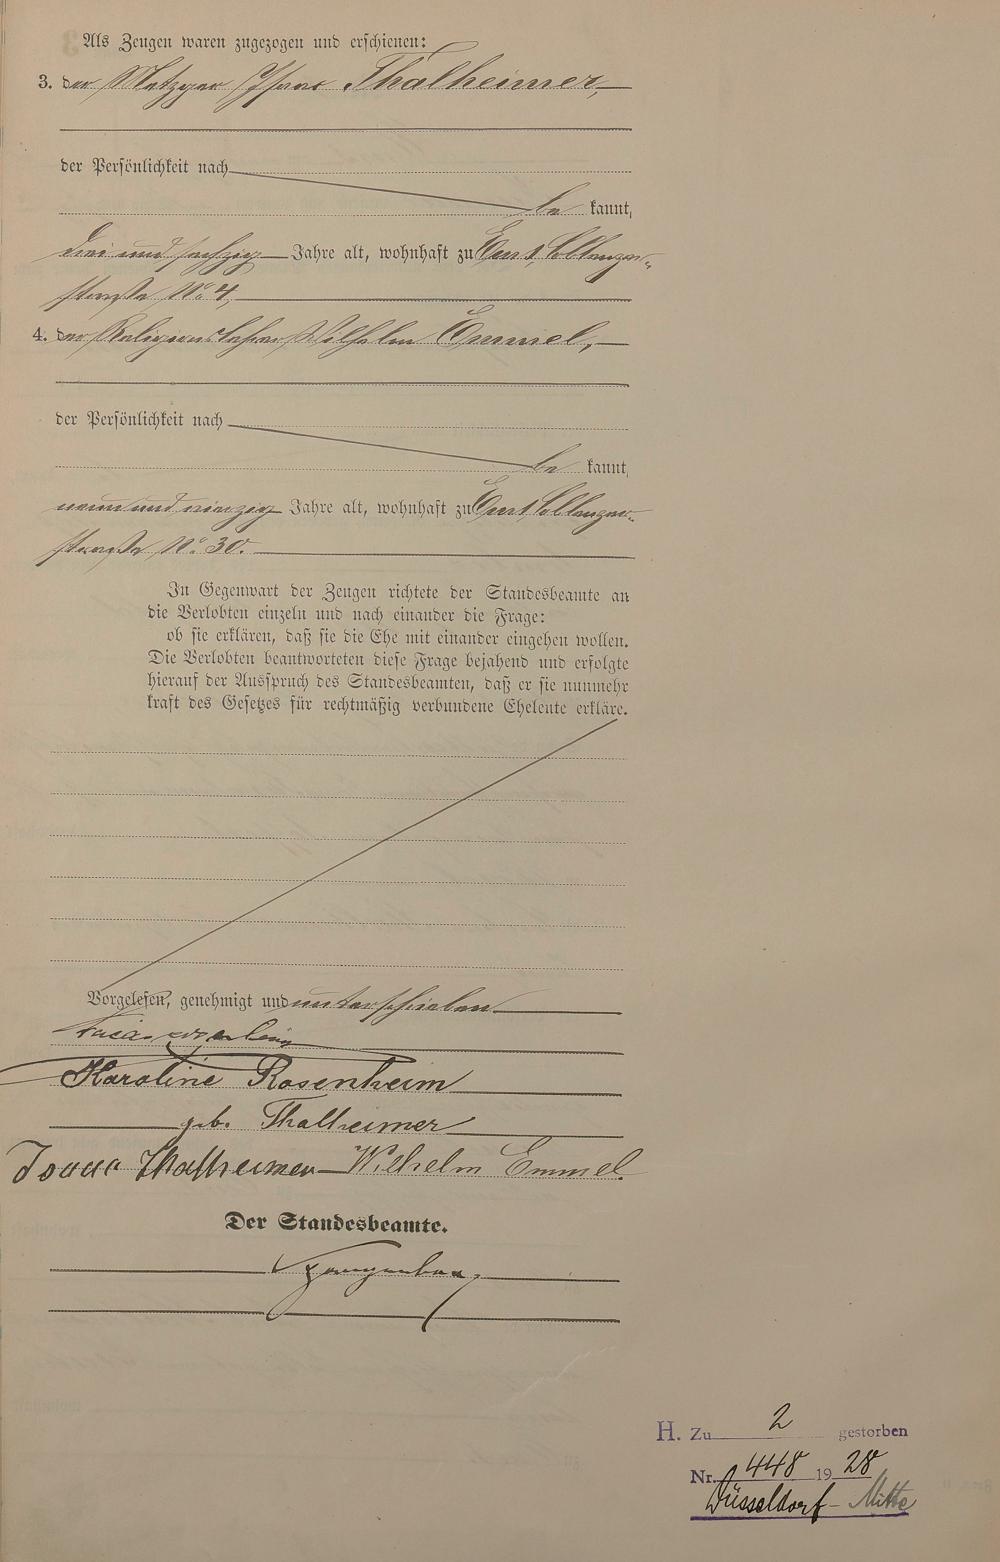 Als Zeugen waren zugezogen und erschienen:
3. der Metzger Isaac Thalheimer,
der Persönlichkeit nach
be kannt,
drei und sechzig Jahre alt, wohnhaft zu Ems, Coblenzer-
straße No. 4,
4. der Religionslehrer Wilhelm Emmel,
der Persönlichkeit nach
be kannt,
neun und vierzig Jahre alt, wohnhaft zu Ems Coblenzer-
straße No. 30.
In Gegenwart der Zeugen richtete der Standesbeamte an
die Verlobten einzeln und nach einander die Frage:
ob sie erklären, daß sie die Ehe mit einander eingehen wollen.
Die Verlobten beantworteten diese Frage bejahend und erfolgte
hierauf der Ausspruch des Standesbeamten, daß er sie nunmehr
kraft des Gesetzes für rechtmäßig verbundene Eheleute erkläre.
Vorgelesen, genehmigt und unterschrieben
Karoline Rosenheim
geb. Thalheimer
Isaac Thalheimer Wilhelm Emmel.
Der Standesbeamte.
H. Zu 2 gestorben
Nr. 448 1928
Düsseldorf-Mitte